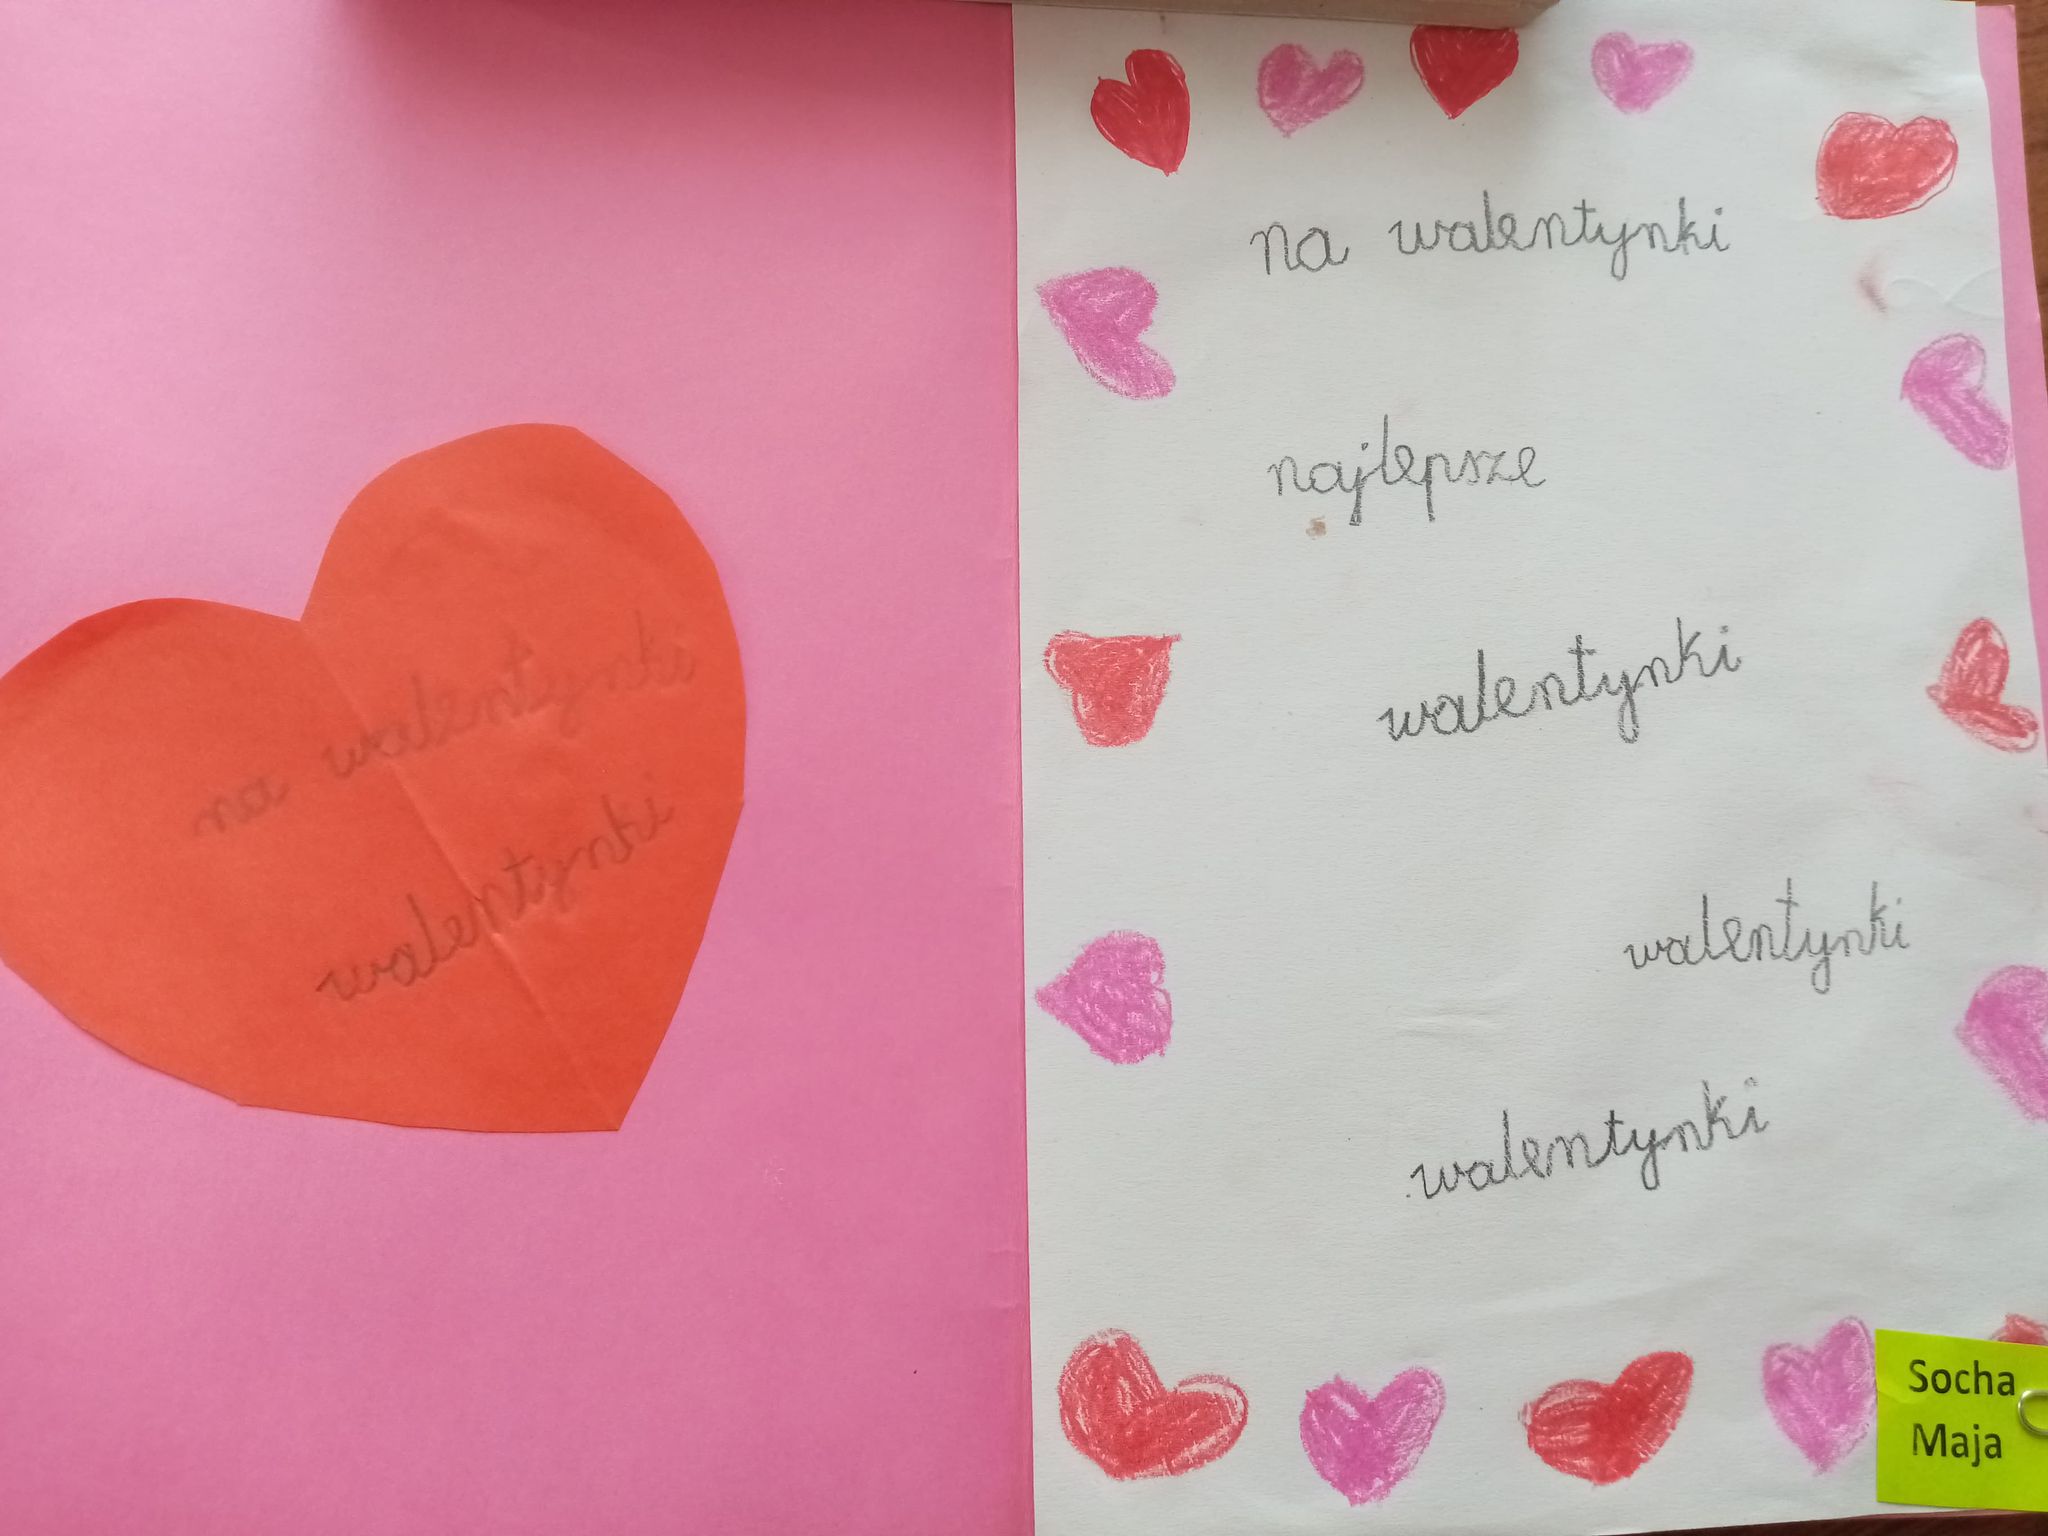 na walentynki
walentynki
na walentynki
najlepsze
walentynki
walentynki
walentynki
Socha
Maja